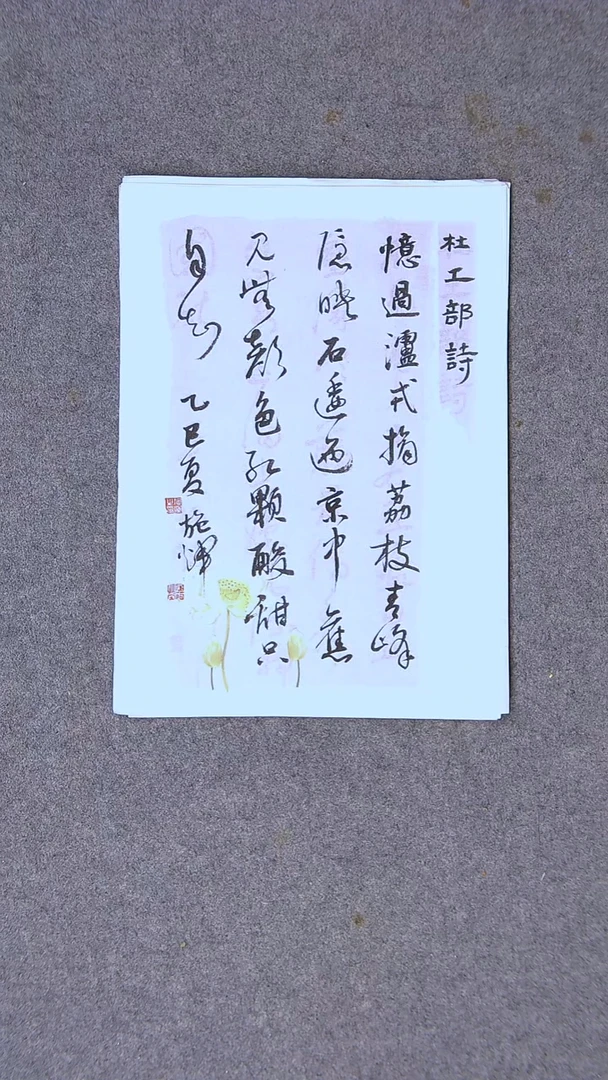 杜工部詩
憶過瀘戎摘荔枝青峰
隱映石逶迤京中舊
见無顏色紅顆酸甜只
自知 乙巳夏 施